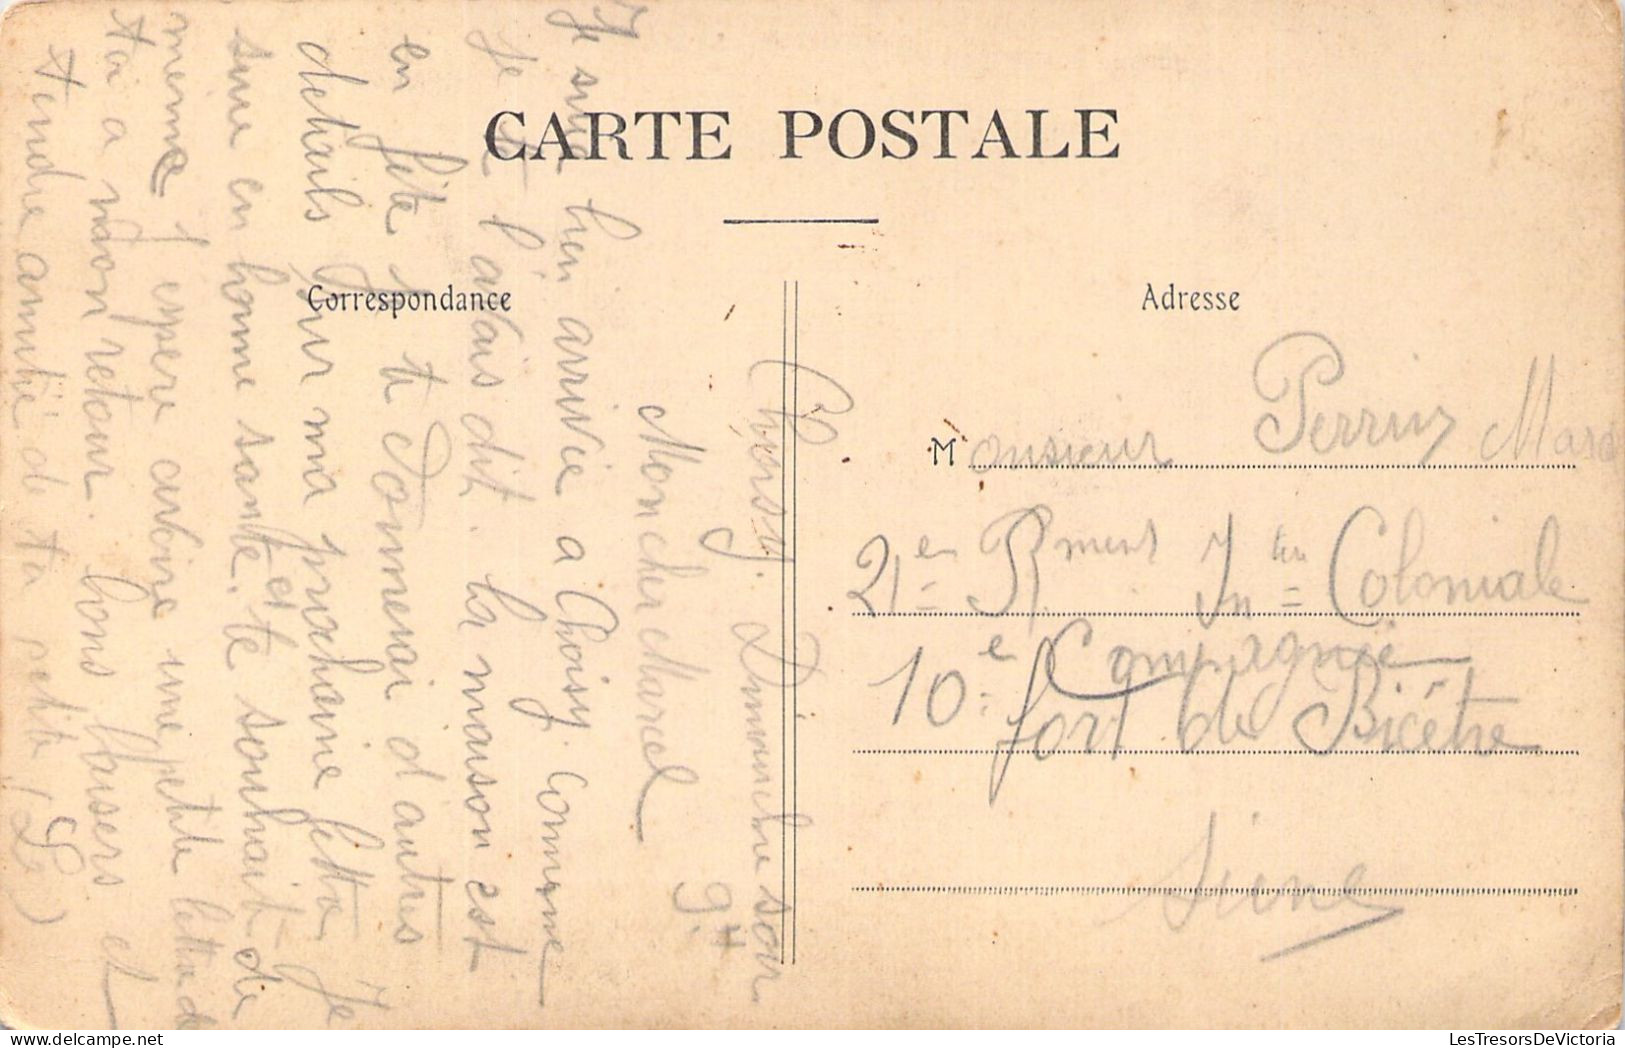 CARTE POSTALE
Correspondance
Adresse
Choisy. Dimanche soir
9.H
Mon cher Marcel
Je suis bien arrivée a Choisy. Comme
je te l'avais dit. la maison est
en fête je te donnerai d'autres
details sur ma prochaine lettre. Je
suis en bonne santé. et te souhait de
meme J espere avoire une petite lettre de
toi a mon retour. bons baisers et
tendre amitié de ta petite (L.)
Monsieur Perrin Marcel
21 en Rment In ten Coloniale
10 e Compagnie
fort de Bicêtre
Seine
LesTresorsDeVictoria